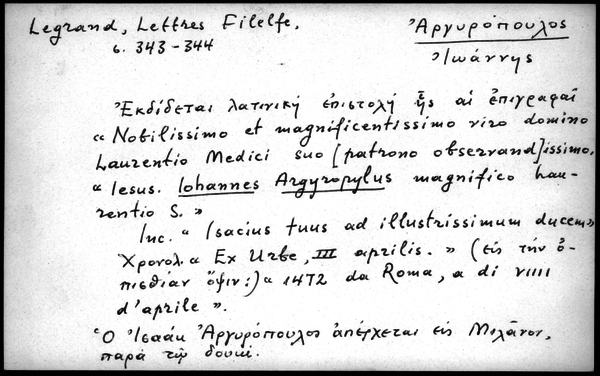 Legrand, Lettres Filelfe,
σ. 343-344
Ἀργυρόπουλος
Ἰωάννης
Ἐκδίδεται λατινική ἐπιστολή ἧς αἱ ἐπιγραφαί
« Nobilissimo et magnificentissimo viro domino
Laurentio Medici suo [patrono observand]issimo.
« Iesus. Iohannes Argyropylus magnifico Lau-
rentio S. »
Inc. « Isacius tuus ad illustrissimum ducem »
Χρονολ. « Ex Urbe, III aprilis. » (εἰς τήν ὀ-
πισθίαν ὄψιν:) « 1472 da Roma, a di VIIII
d'aprile ».
Ὁ Ἰσαάκ Ἀργυρόπουλος ἀπέρχεται εἰς Μιλᾶνον,
παρά τῷ δουκί.